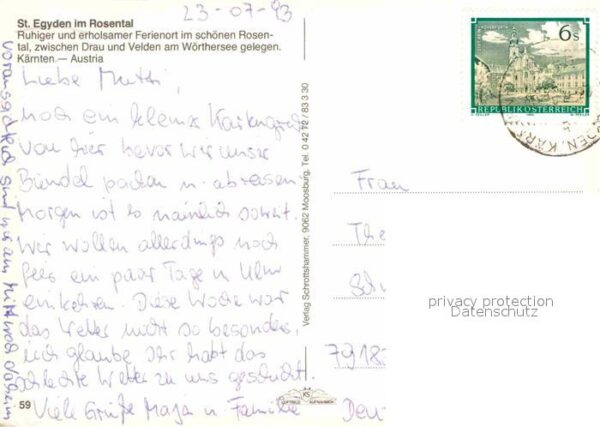 23-07-93
St. Egyden im Rosental
Ruhiger und erholsamer Ferienort im schönen Rosen-
tal, zwischen Drau und Velden am Wörthersee gelegen.
Kärnten.— Austria
Liebe Mutti,
noch ein kleiner Kartengruß
von hier bevor wir unser
Bündel packen u. abreisen
Morgen ist es nämlich soweit.
Wir wollen allerdings noch
ein paar Tage in Ulm
einkehren. Diese Woche war
das Wetter nicht so besonders.
ich glaube Ihr habt das
schlechte Wetter zu uns geschickt.
Viele Grüße Maja u. Familie
voraussichtlich sind wir am Mittwoch daheim
59
Verlag Schrottshammer, 9062 Moosburg, Tel. 0 42 72 / 83 3 30
KS
6 s
REPUBLIK ÖSTERREICH
Frau
The
Sch
privacy protection
Datenschutz
7918
Deu